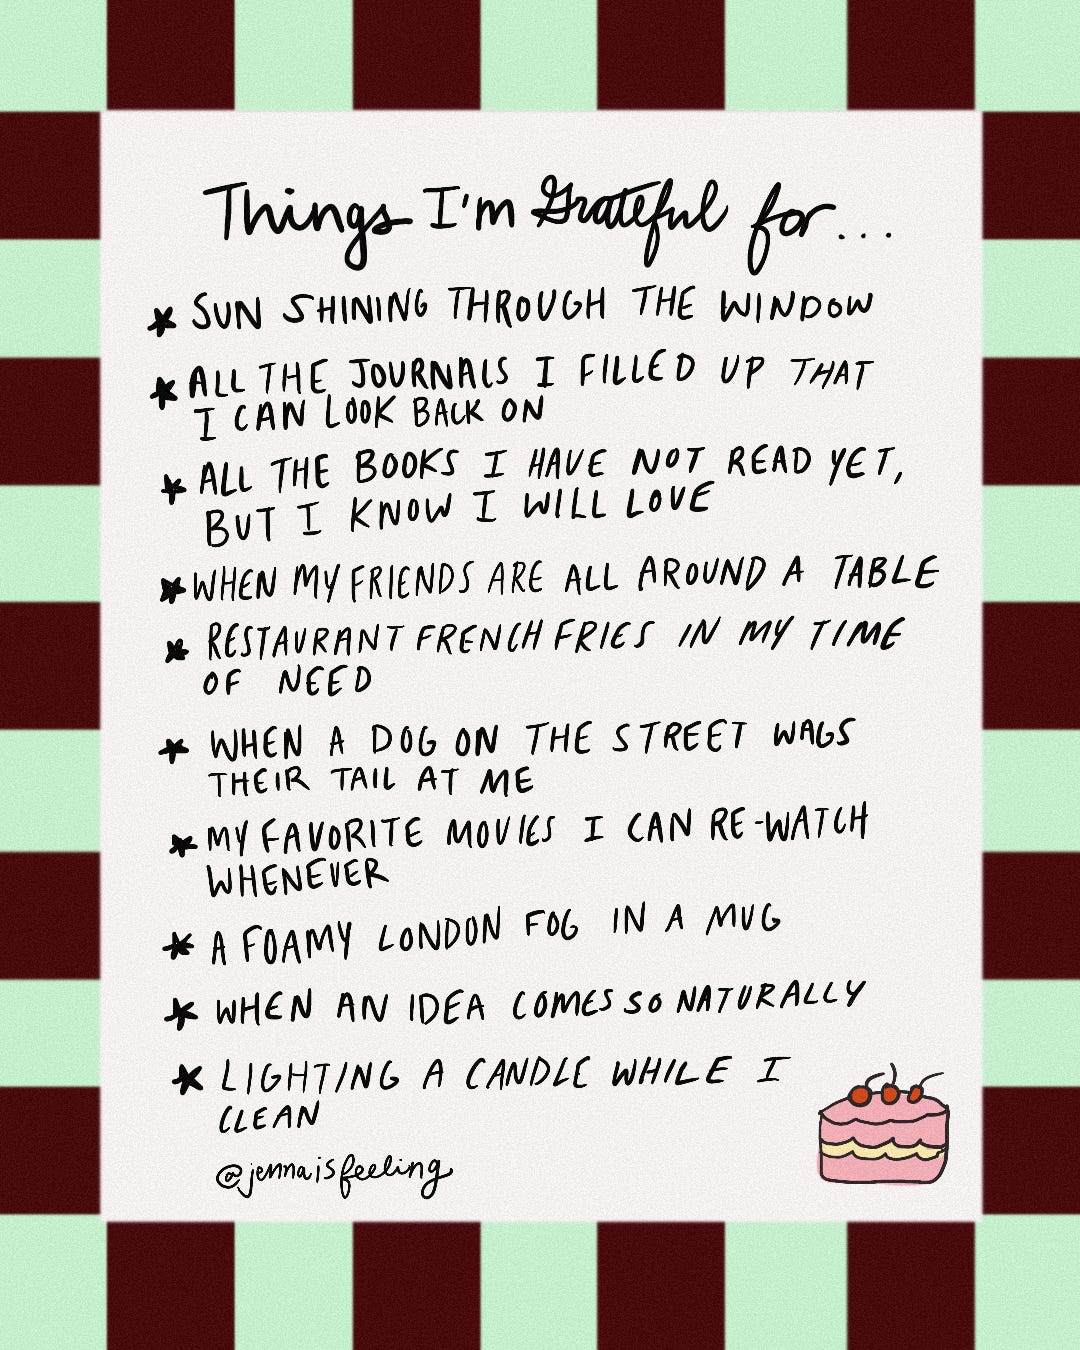 Things I'm Grateful for...
* SUN SHINING THROUGH THE WINDOW
* ALL THE JOURNALS I FILLED UP THAT
I CAN LOOK BACK ON
* ALL THE BOOKS I HAVE NOT READ YET,
BUT I KNOW I WILL LOVE
* WHEN MY FRIENDS ARE ALL AROUND A TABLE
* RESTAURANT FRENCH FRIES IN MY TIME
OF NEED
* WHEN A DOG ON THE STREET WAGS
THEIR TAIL AT ME
* MY FAVORITE MOVIES I CAN RE-WATCH
WHENEVER
* A FOAMY LONDON FOG IN A MUG
* WHEN AN IDEA COMES SO NATURALLY
* LIGHTING A CANDLE WHILE I
CLEAN
@jennaisfeeling